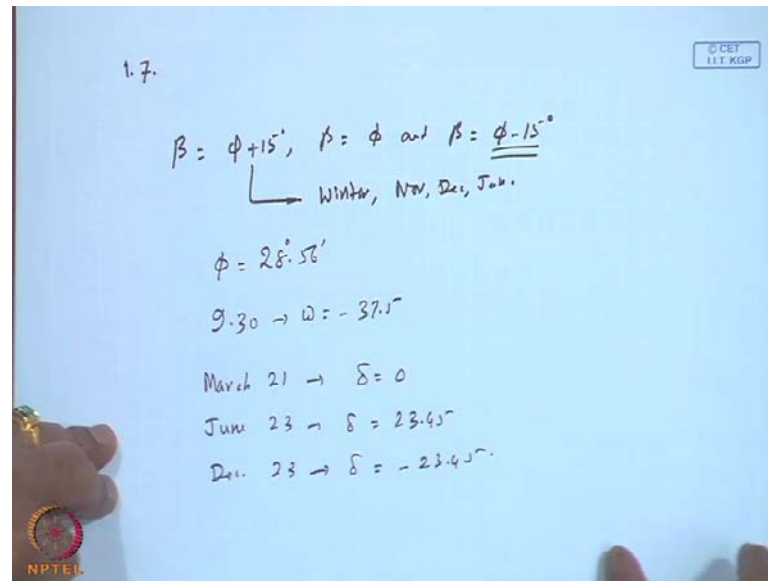 © CET
I.I.T. KGP
1.7.
β = φ+15°, β = φ and β = φ-15°
Winter, Nov, Dec, Jan.
φ = 28° 56'
9.30 → ω = - 37.5
March 21 → δ = 0
June 23 → δ = 23.45
Dec. 23 → δ = - 23.45.
NPTEL